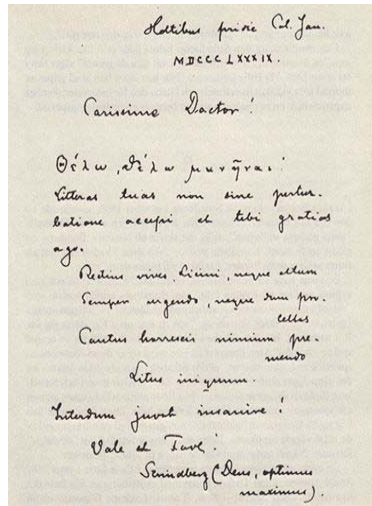 Holtibus pridie Cal. Jan.
MDCCCLXXXIX.
Carissime Doctor!
Θέλω, θέλω μανῆναι!
Litteras tuas non sine pertur-
batione accepi et tibi gratias
ago.
Rectius vives, Licini, neque altum
Semper urgendo, neque dum pro-
cellas
Cautus horrescis nimium pre-
mendo
Litus iniquum.
Interdum juvat insanire!
Vale et Fave!
Strindberg (Deus, optimus
maximus).